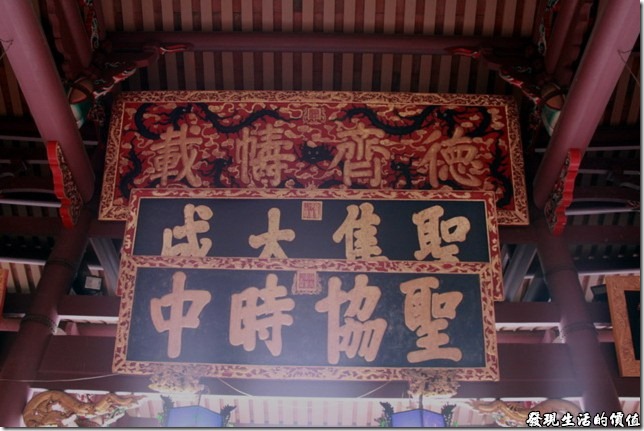 德齊幬載
聖集大成
聖協時中
發現生活的價值